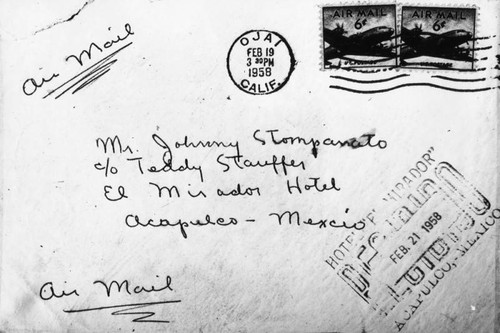 Air Mail
OJAI
FEB 19
3 30PM
1958
CALIF.
AIR MAIL
6¢
AIR MAIL
6¢
Mr. Johnny Stompanato
c/o Teddy Stauffer
El Mirador Hotel
Acapulco - Mexcio
Air Mail
HOTEL "EL MIRADOR"
FEB. 21 1958
ACAPULCO, MEXICO